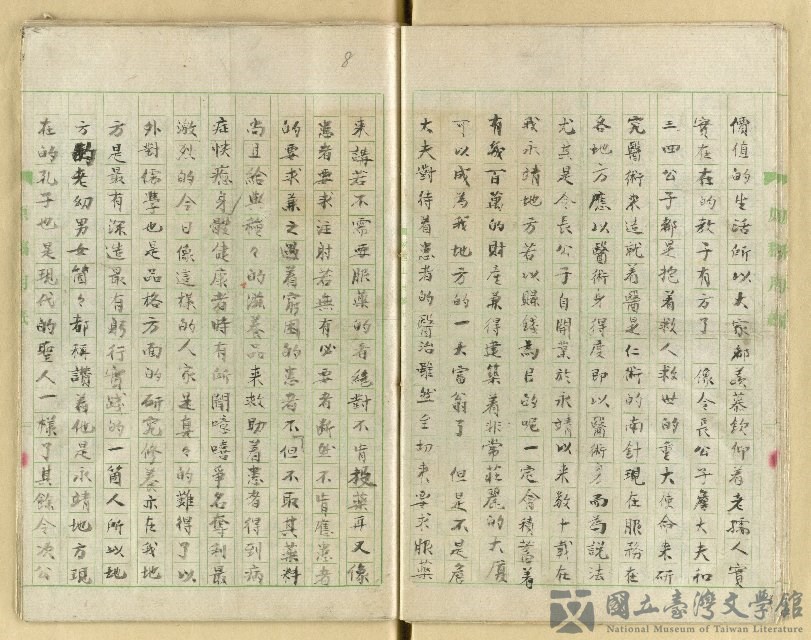 價值的生活所以大家都羨慕欽仰着老孺人實
實在在的教子有方了　像令長公子詹大夫和
三四公子都是抱着救人救世的重大使命来研
究醫術来造就着醫是仁術的南針現在服務在
各地方應以醫術身得度即以醫術身而為說法
尤其是令長公子自開業於永靖以来数十載在
我永靖地方若以賺錢為目的呢一定會積蓄着
有幾百萬的財産兼得建築着非常莊麗的大廈
可以成為我地方的一大富翁了　但是不是詹
大夫對待着患者的醫治雖然主切来要求服薬
8
来講若不需要服薬的者絕對不肯投薬再又像
患者要求注射若無有必要者斷然不肯應患者
的要求兼之遇着窮困的患者不但不取其薬料
尚且給與種々的滋養品来救助着患者得到病
症快癒身體健康者時有所聞嘻嘻爭名奪利最
激烈的今日像這樣的人家是真々的難得了以
外對信學也是品格方面的研究修養亦在我地
方是最有深造最有躬行實踐的一箇人所以地
方的老幼男女箇々都稱讚着他是永靖地方現
在的孔子也是現代的聖人一様了其餘令次公
國立臺灣文學館
National Museum of Taiwan Literature